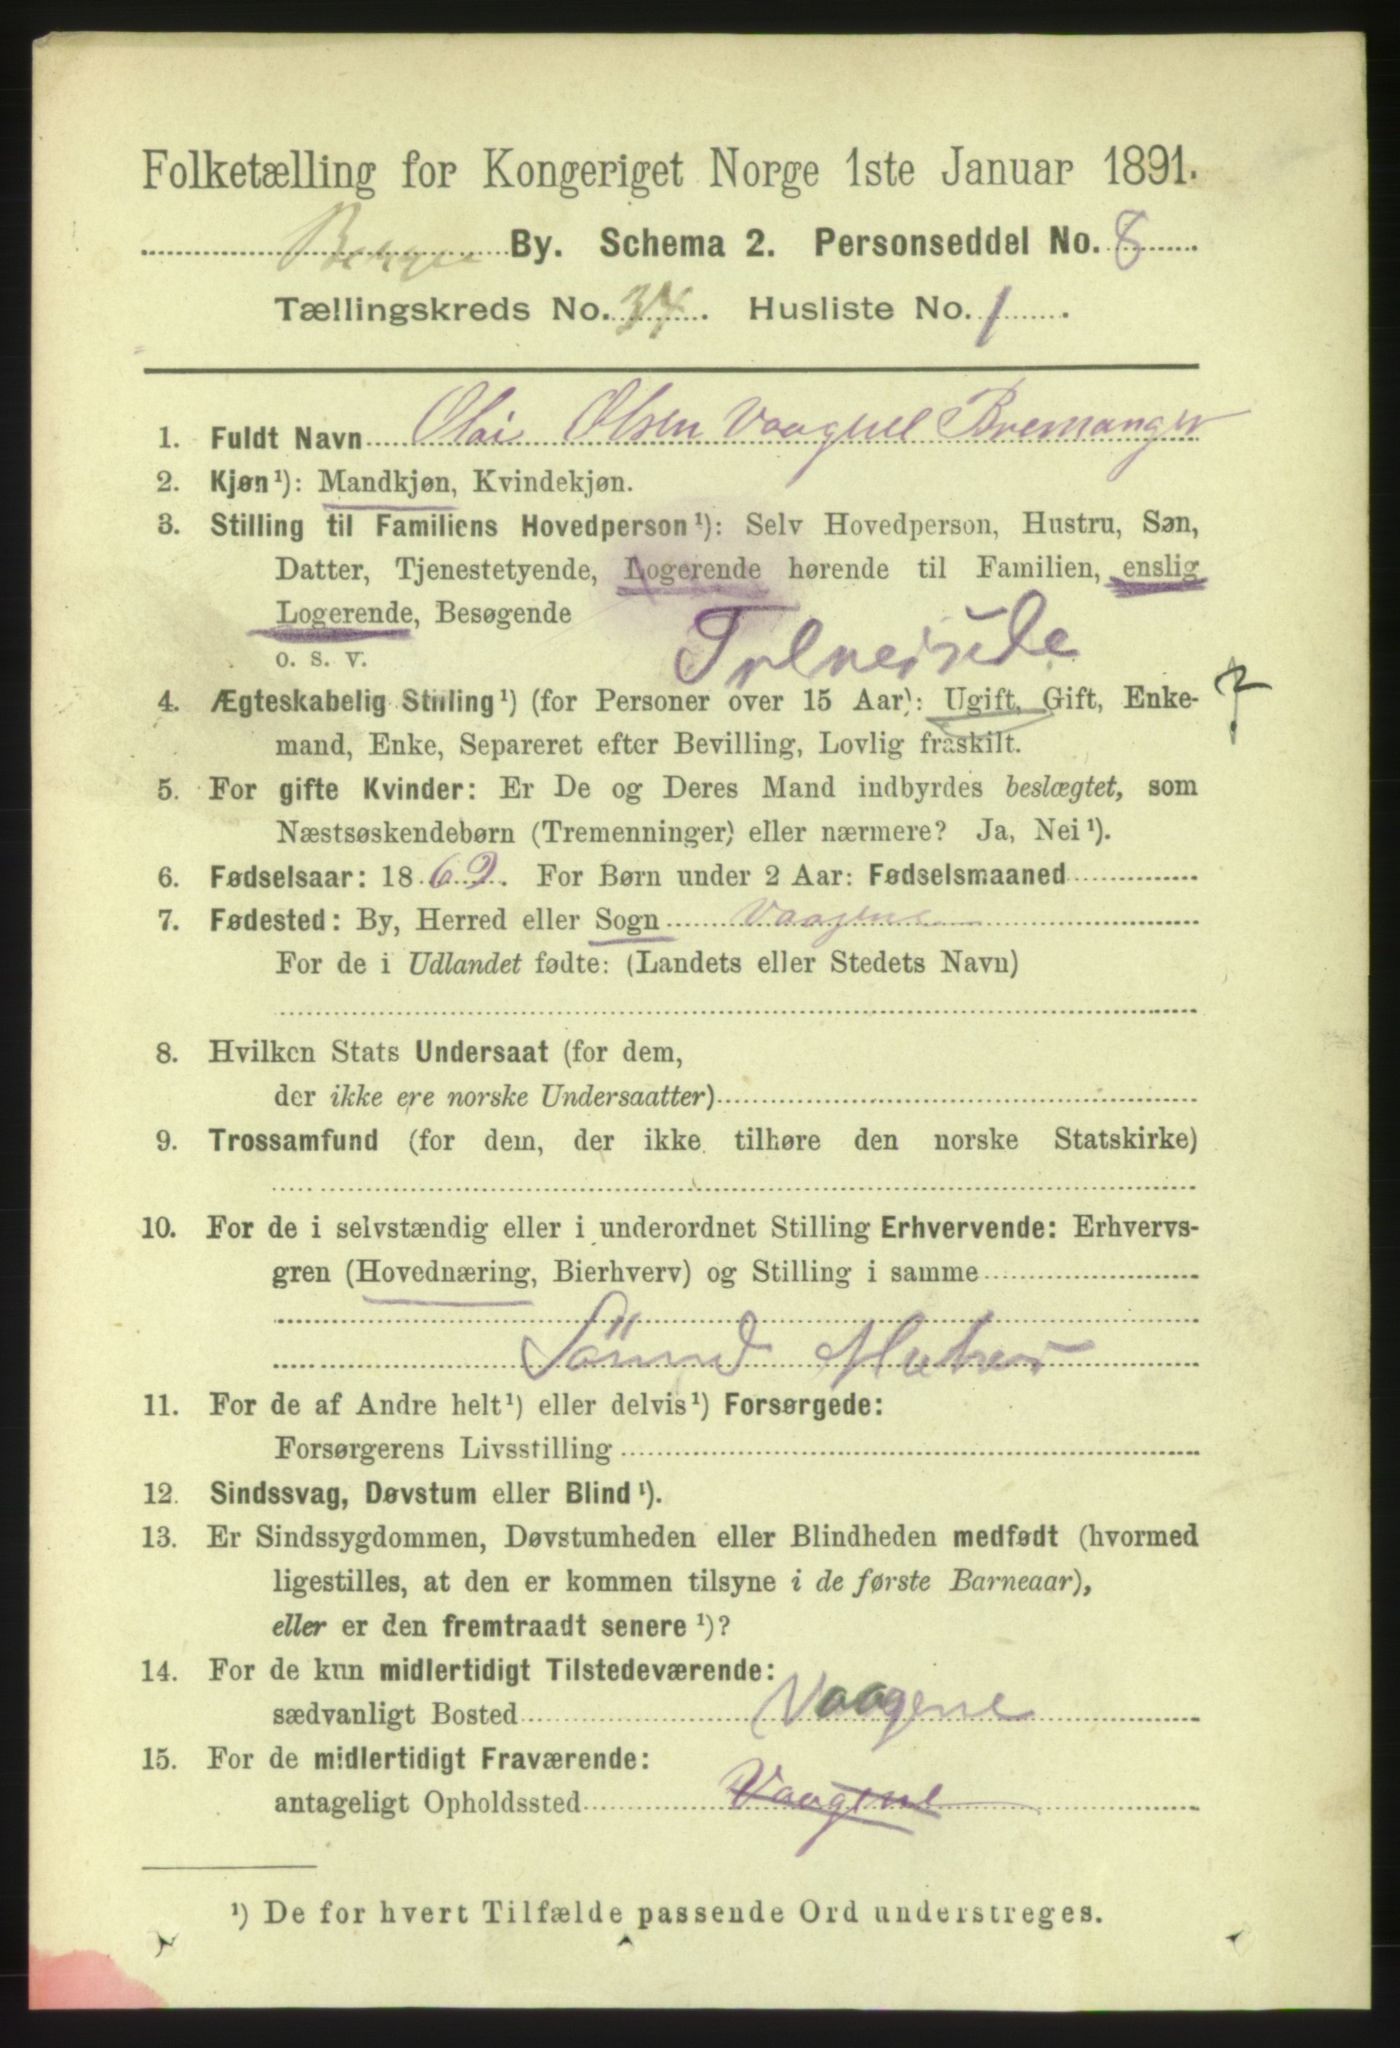 Folketælling for Kongeriget Norge 1ste Januar 1891.
Bergen By. Schema 2. Personseddel No. 8
Tællingskreds No. 37. Husliste No. 1.
1. Fuldt Navn Olai Olsen Vaagene Bremanger
2. Kjøn¹): Mandkjøn, Kvindekjøn.
3. Stilling til Familiens Hovedperson¹): Selv Hovedperson, Hustru, Søn,
Datter, Tjenestetyende, Logerende hørende til Familien, enslig
Logerende, Besøgende
o. s. v.
4. Ægteskabelig Stilling¹) (for Personer over 15 Aar): Ugift, Gift, Enke-
mand, Enke, Separeret efter Bevilling, Lovlig fraskilt.
5. For gifte Kvinder: Er De og Deres Mand indbyrdes beslægtet, som
Næstsøskendebørn (Tremenninger) eller nærmere? Ja, Nei¹).
6. Fødselsaar: 1862. For Børn under 2 Aar: Fødselsmaaned
7. Fødested: By, Herred eller Sogn Vaagene
For de i Udlandet fødte: (Landets eller Stedets Navn)
8. Hvilken Stats Undersaat (for dem,
der ikke ere norske Undersaatter)
9. Trossamfund (for dem, der ikke tilhøre den norske Statskirke)
10. For de i selvstændig eller i underordnet Stilling Erhvervende: Erhvervs-
gren (Hovednæring, Bierhverv) og Stilling i samme
11. For de af Andre helt¹) eller delvis¹) Forsørgede:
Forsørgerens Livsstilling
12. Sindssvag, Døvstum eller Blind¹).
13. Er Sindssygdommen, Døvstumheden eller Blindheden medfødt (hvormed
ligestilles, at den er kommen tilsyne i de første Barneaar),
eller er den fremtraadt senere¹)?
14. For de kun midlertidigt Tilstedeværende:
sædvanligt Bosted Vaagene
15. For de midlertidigt Fraværende:
antageligt Opholdssted Vaagene
¹) De for hvert Tilfælde passende Ord understreges.